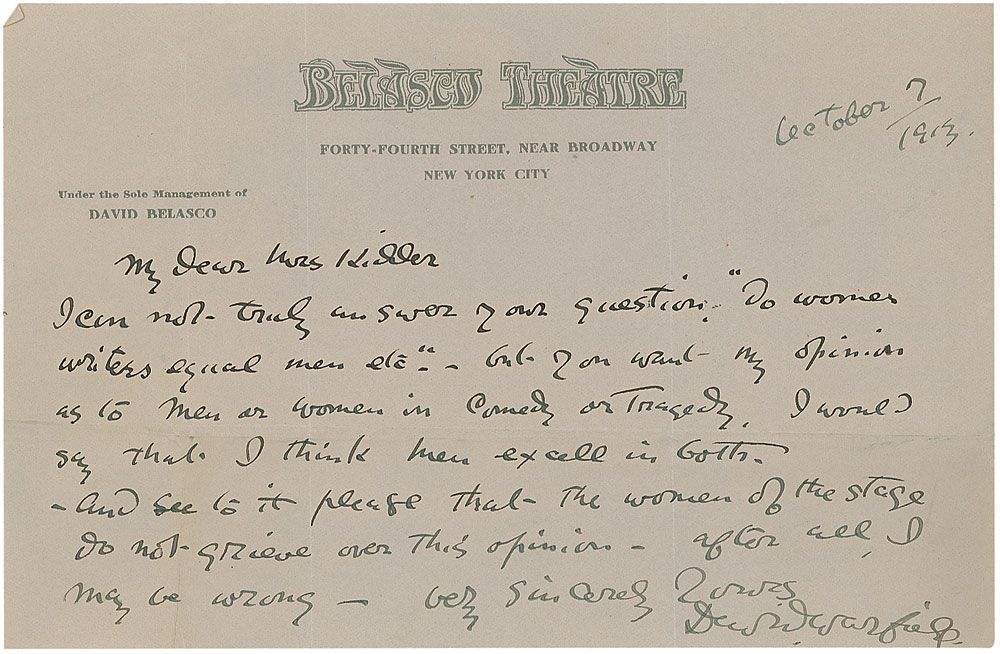 BELASCO THEATRE
FORTY-FOURTH STREET, NEAR BROADWAY
NEW YORK CITY
October 7/1913.
Under the Sole Management of
DAVID BELASCO
My dear Mrs Kidder
I can not truly answer your question, "Do women
writers equal men etc". - but you want my opinion
as to men or women in Comedy or Tragedy, I would
say that I think men excell in both.
- And see to it please that the women of the stage
do not grieve over this opinion - after all, I
may be wrong - very sincerely yours
David Warfield.